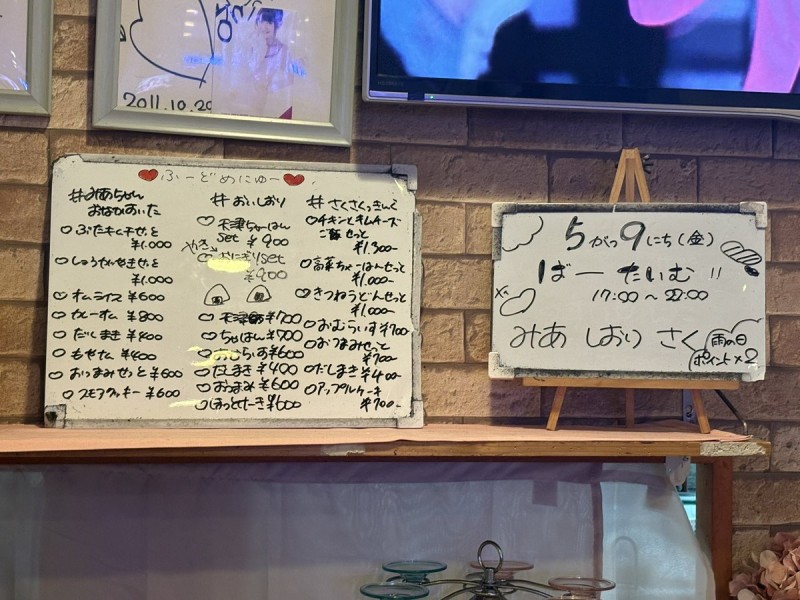 2011.10.20
ふーどめにゅー
#みあちゃん
おなかすいた
ぶたキムチせっと
¥1.000
しょうがやきせっと
¥1.000
オムライス ¥600
カレーオム ¥800
だしまき ¥400
もやナム ¥400
おつまみせっと ¥600
スモアクッキー ¥600
#おいしおり
天津ちゃーはん
set ¥900
おにぎりset
¥900
天津飯 ¥700
ちゃはん ¥700
おむらいす ¥600
だしまき ¥400
おつまみ ¥600
ほっとけーき ¥600
#さくさくっきんぐ
チキンとキムチーズ
ご飯せっと
¥1,300-
高菜ちゃーはんせっと
¥1,000-
きつねうどんせっと
¥1,000-
おむらいす ¥700-
おつまみせっと
¥700-
だしまき ¥400-
アップルケーキ
¥700-
5がつ9にち(金)
ばーたいむ!!
17:00～22:00
みあ しおり さく
雨の日
ポイント×2